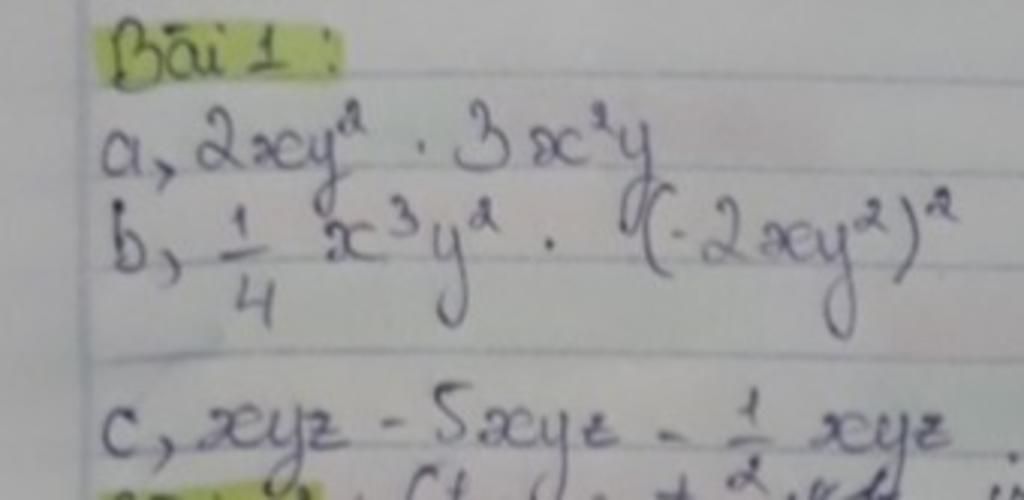 Bài 1:
a, 2xy² . 3x²y
b, 1/4 x³y² . (-2xy²)²
c, xyz - 5xyz - 1/2 xyz.